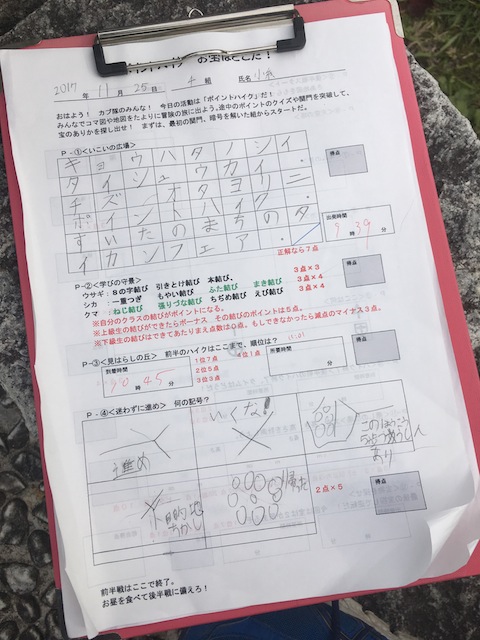 お宝はどこだ!
2017 年 11 月 25 日 4 組 氏名
おはよう! カブ隊のみんな! 今日の活動は「ポイントハイク」だ!
みんなでコマ図や地図をたよりに冒険の旅に出よう。途中のポイントのクイズや関門を突破して、
宝のありかを探し出せ! まずは、最初の関門、暗号を解いた組からスタートだ。
P-①<いこいの広場>
キョウハタノシイ
タイシュウカイ.
チズ オタヨリニ
ポイントハイク
すいたのまちのタ
イカンフェア.
得点
出発時間
9 時 39 分
正解なら7点
P-②<学びの守景>
ウサギ:8の字結び 引きとけ結び 本結び、 3点×3
シカ :一重つぎ もやい結び ふた結び まき結び 3点×4
クマ :ねじ結び 張りづな結び ちぢめ結び えび結び 3点×4
得点
※自分のクラスの結びがポイントになる。
※上級生の結びができたらボーナス その結びのポイントは5点。
※下級生の結びはできてあたりまえ点数は0点。もしできなかったら減点のマイナス3点。
P-③<見はらしの丘> 前半のハイクはここまで、順位は?
到着時間
10 時 45 分
1位7点 4位1点
2位5点
3位3点
所要時間
時間 分
得点
P-④<迷わずに進め> 何の記号?
進め
いくな!
このほうこう
5歩 つうしん
あり
目的地
ちかし
帰った
2点×5
得点
前半戦はここで終了。
お昼を食べて後半戦に備えろ!